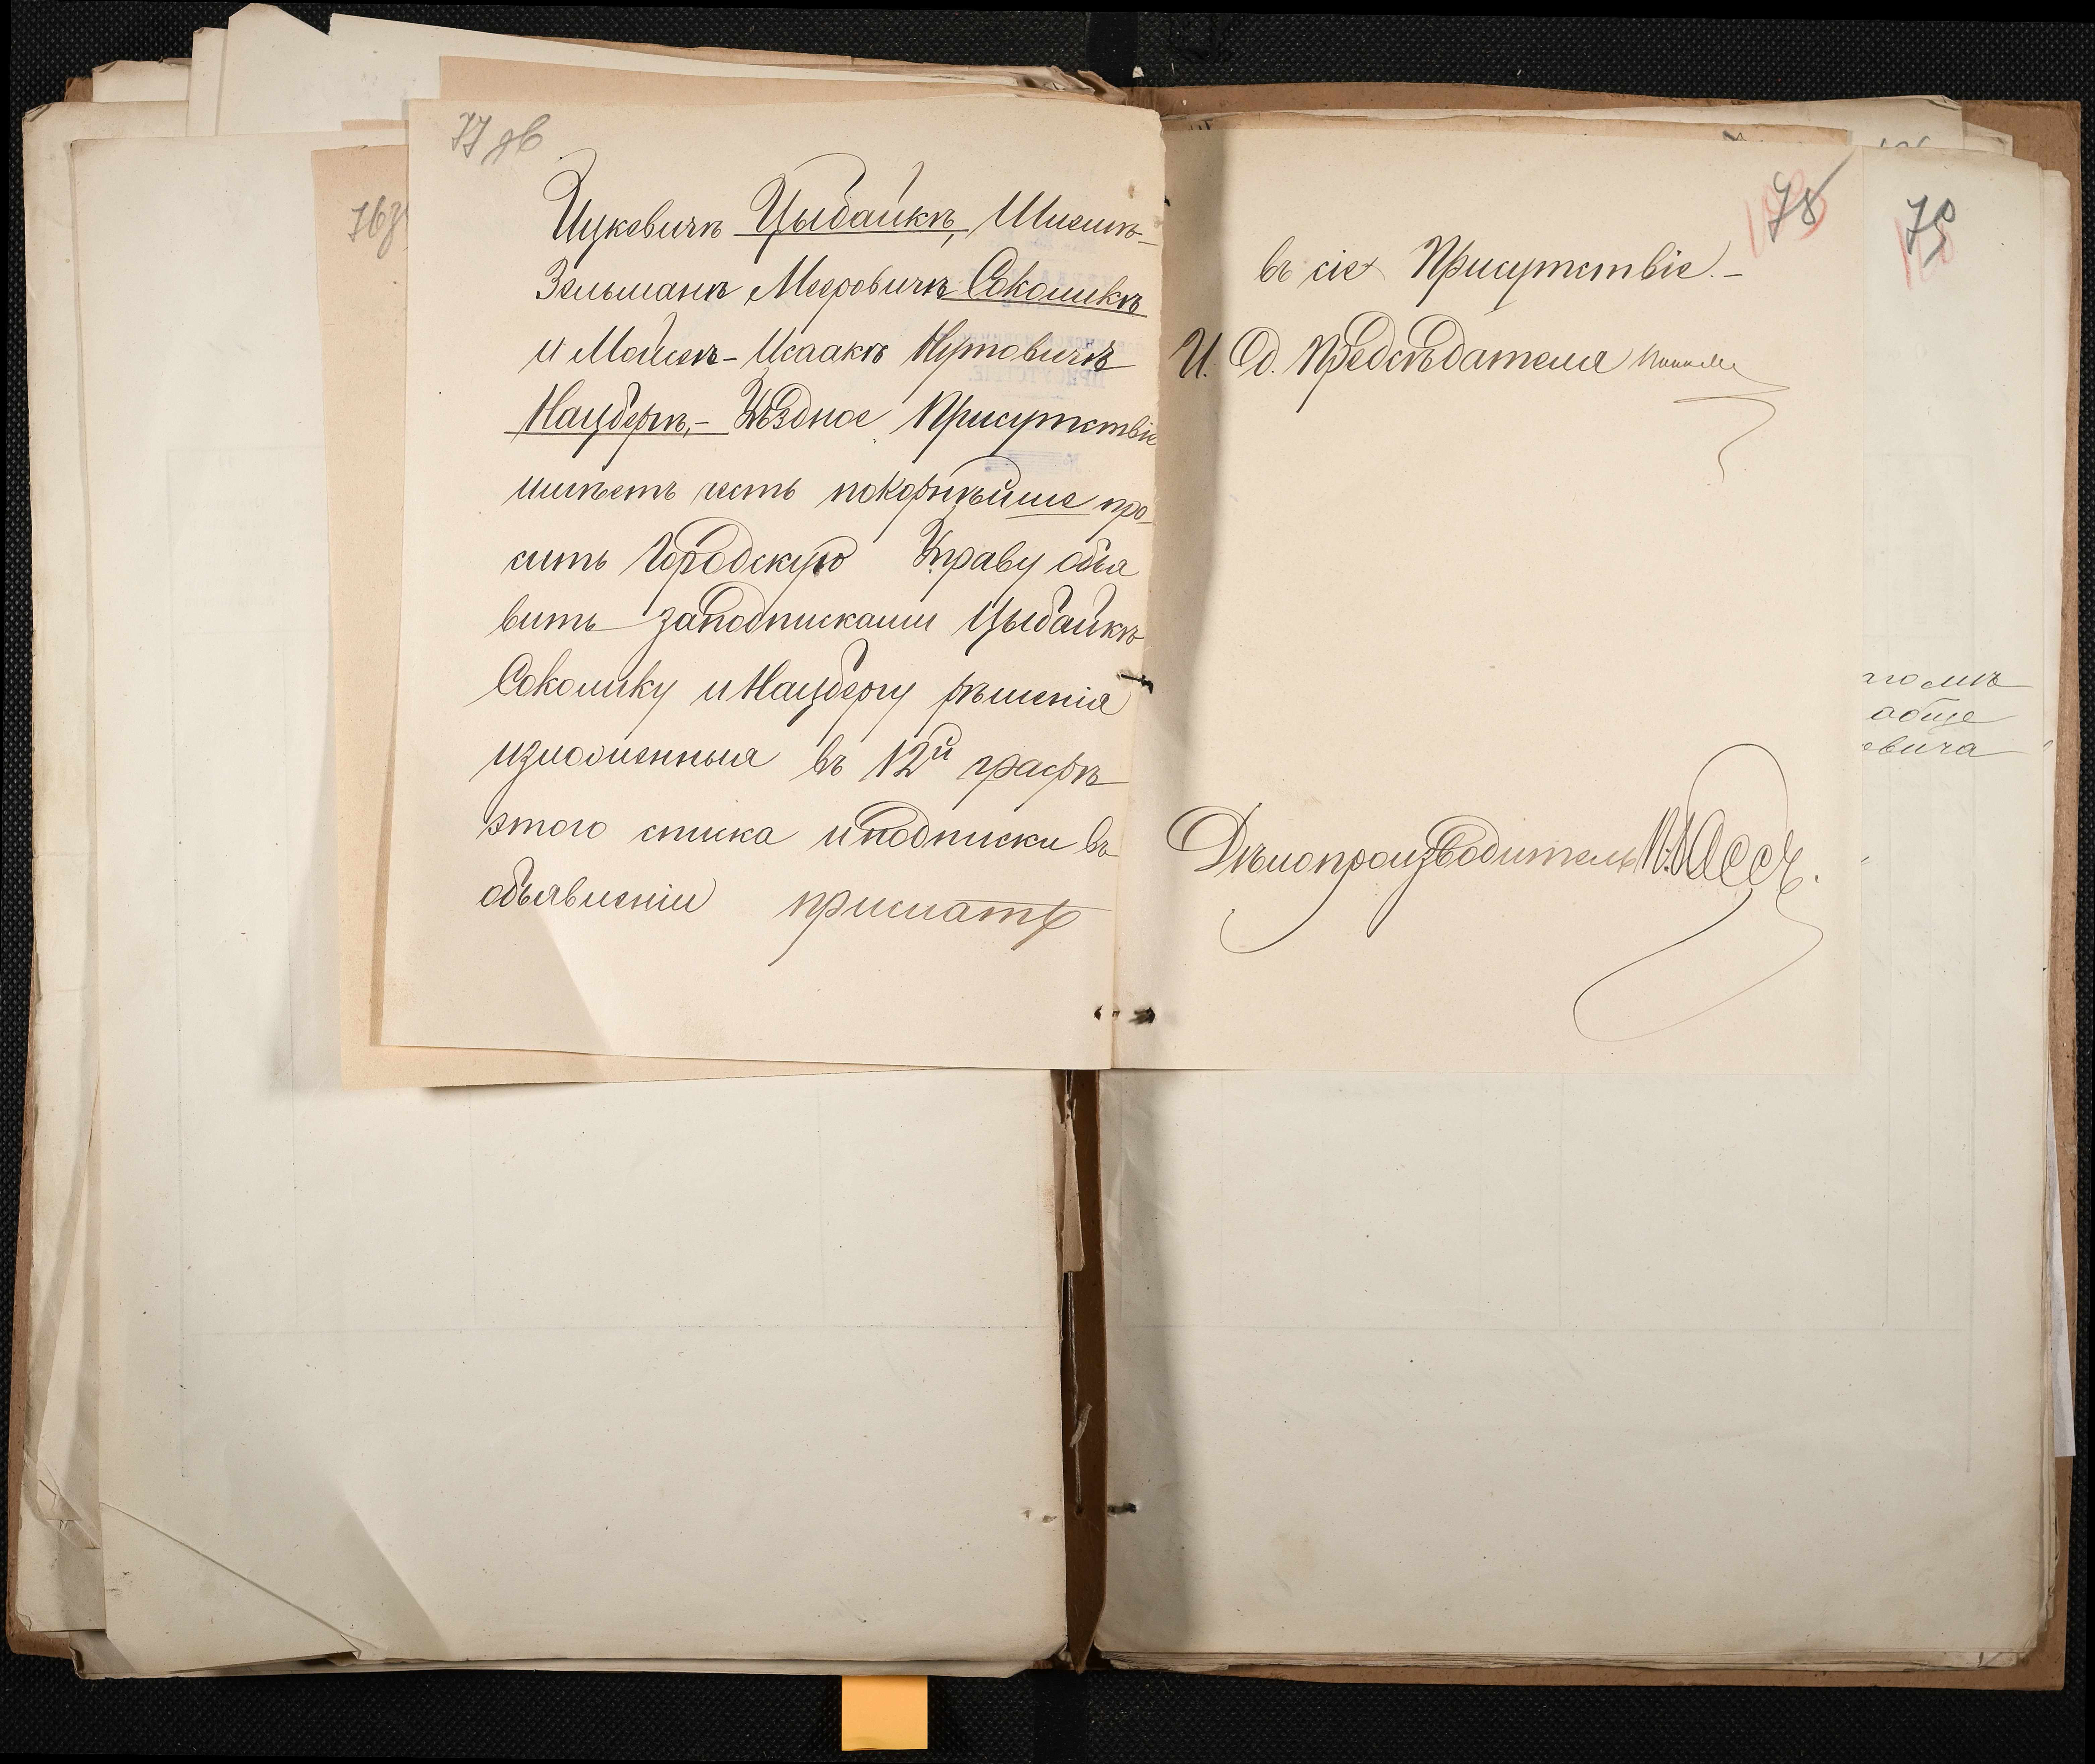 77 об
Ицковичъ Цыбайкъ, Шлема-
Зельманъ Мееровичъ Соколикъ
и Мойше-Исаакъ Нутовичъ
Нацбергъ, – Уѣздное Присутствіе
имѣетъ честь покорнѣйше про-
сить Городскую Управу объя
вить заподписками Цыбайкѣ
Соколику и Нацбергу рѣшенія
изложенныя въ 12й графѣ
этого списка и подписки въ
объявленіи прислать
78
въ сіе Присутствіе. –
И. Д. Предсѣдателя
Дѣлопроизводитель
76
79
евича